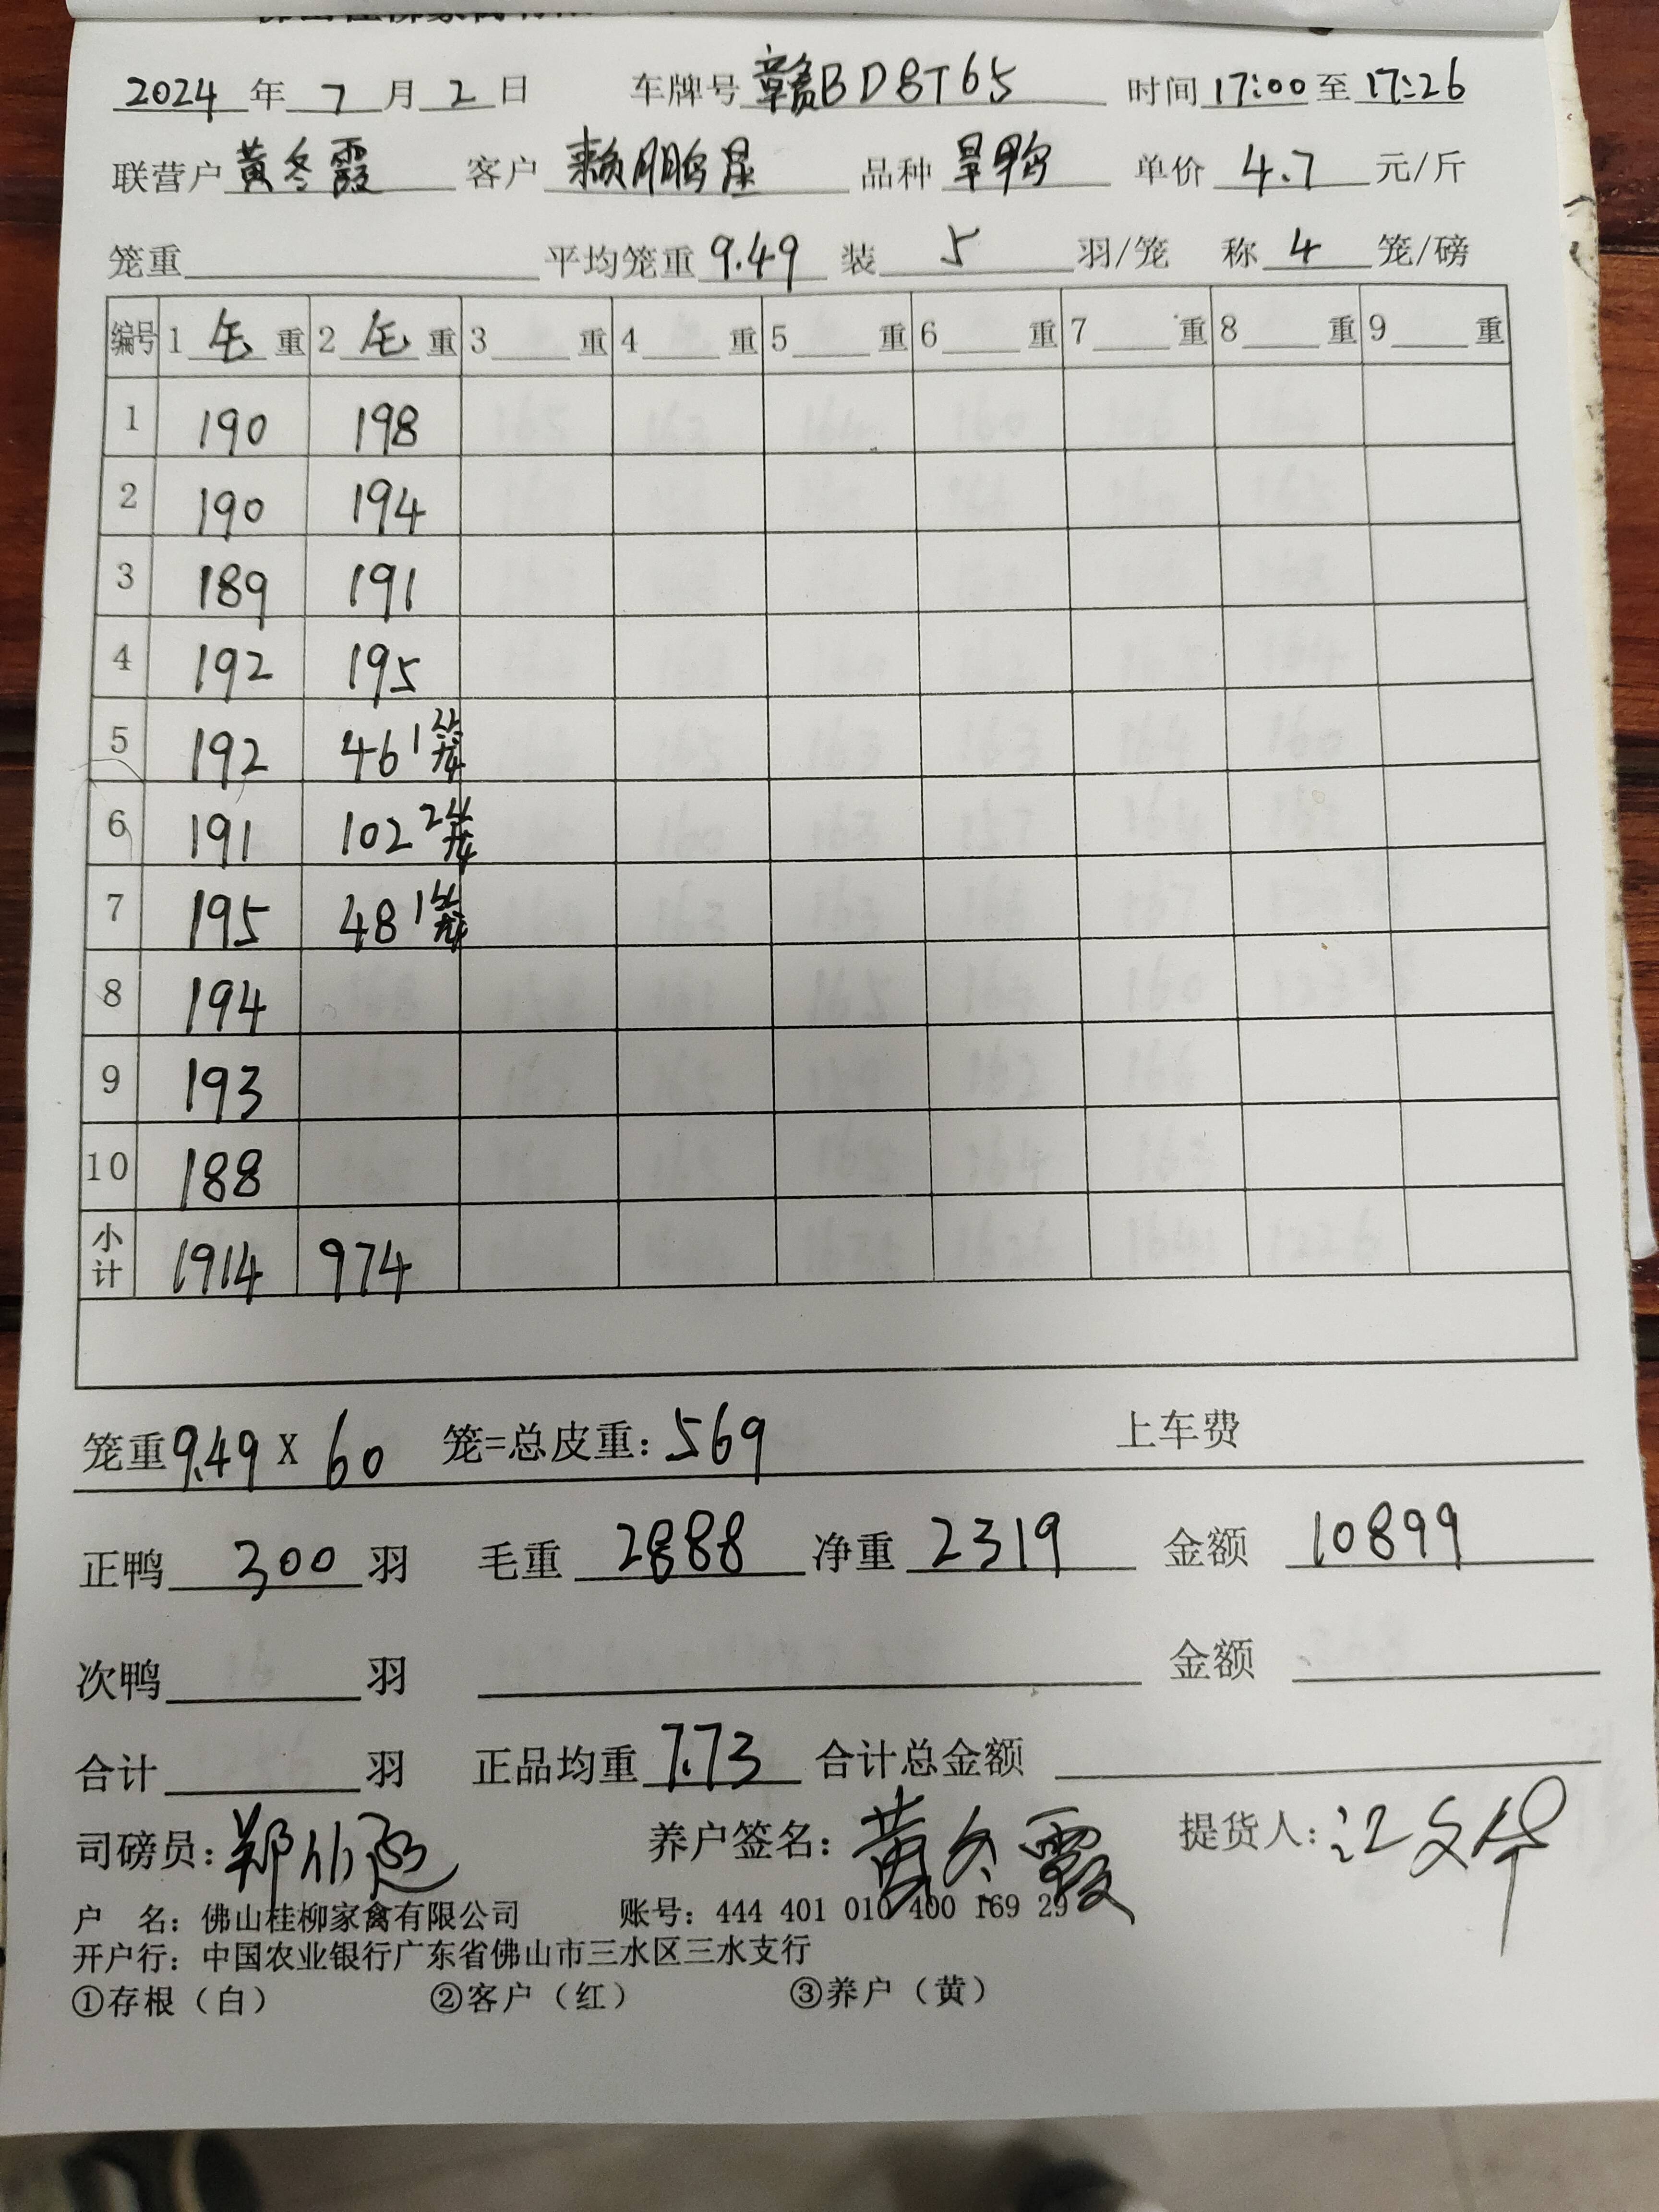 2024 年 7 月 2 日 车牌号 赣BD8T65 时间 17:00 至 17:26
联营户 黄冬霞 客户 赖鹏星 品种 旱鸭 单价 4.7 元/斤
笼重 平均笼重 9.49 装 5 羽/笼 称 4 笼/磅
编号 1 毛 重 2 毛 重 3 重 4 重 5 重 6 重 7 重 8 重 9 重
1 190 198
2 190 194
3 189 191
4 192 195
5 192 46 1笼
6 191 102 2笼
7 195 48 1笼
8 194
9 193
10 188
小计 1914 974
笼重 9.49 X 60 笼=总皮重: 569 上车费
正鸭 300 羽 毛重 2888 净重 2319 金额 10899
次鸭 羽 金额
合计 羽 正品均重 7.73 合计总金额
司磅员: 养户签名: 黄冬霞 提货人: 江文华
户 名: 佛山桂柳家禽有限公司 账号: 444 401 010 400 169 29
开户行: 中国农业银行广东省佛山市三水区三水支行
①存根（白） ②客户（红） ③养户（黄）